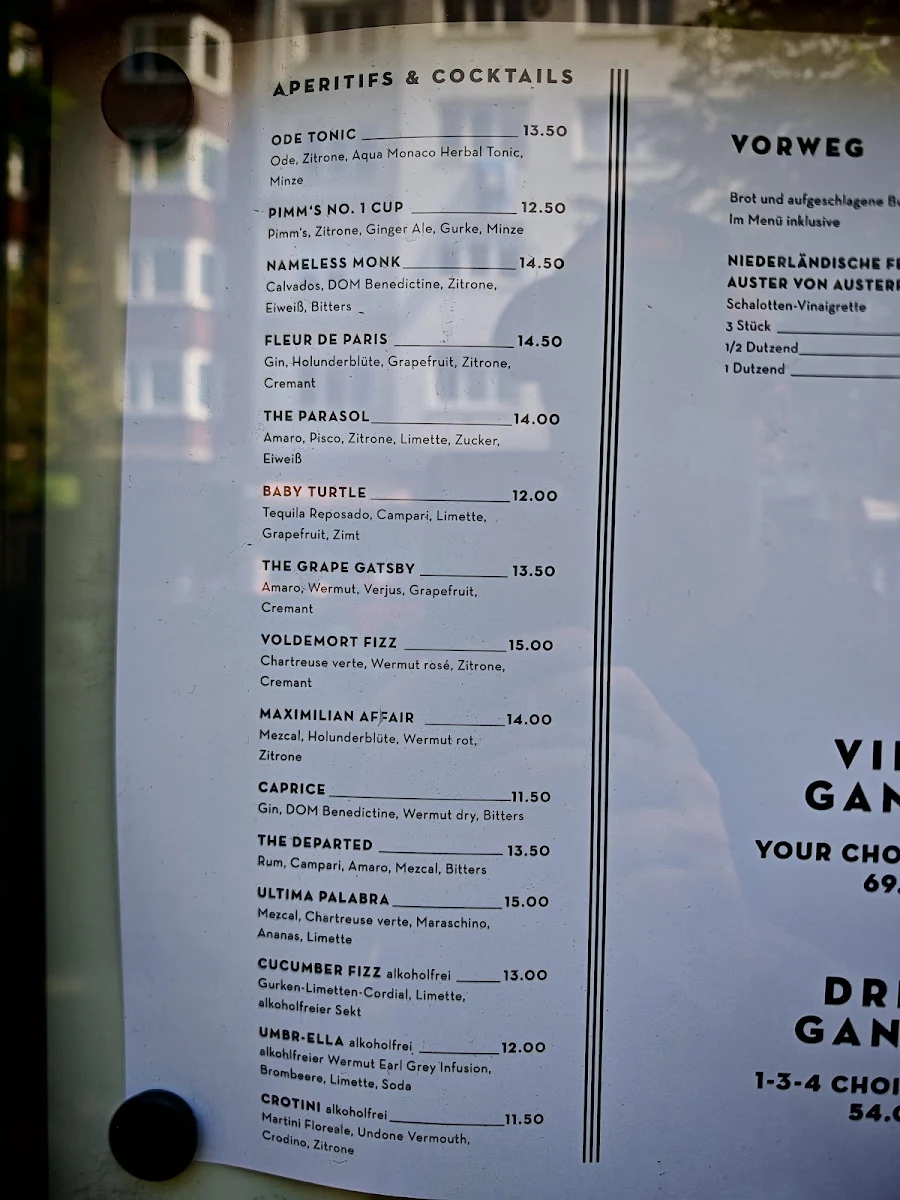 APERITIFS & COCKTAILS
ODE TONIC 13.50
Ode, Zitrone, Aqua Monaco Herbal Tonic,
Minze
PIMM'S NO. 1 CUP 12.50
Pimm's, Zitrone, Ginger Ale, Gurke, Minze
NAMELESS MONK 14.50
Calvados, DOM Benedictine, Zitrone,
Eiweiß, Bitters
FLEUR DE PARIS 14.50
Gin, Holunderblüte, Grapefruit, Zitrone,
Cremant
THE PARASOL 14.00
Amaro, Pisco, Zitrone, Limette, Zucker,
Eiweiß
BABY TURTLE 12.00
Tequila Reposado, Campari, Limette,
Grapefruit, Zimt
THE GRAPE GATSBY 13.50
Amaro, Wermut, Verjus, Grapefruit,
Cremant
VOLDEMORT FIZZ 15.00
Chartreuse verte, Wermut rosé, Zitrone,
Cremant
MAXIMILIAN AFFAIR 14.00
Mezcal, Holunderblüte, Wermut rot,
Zitrone
CAPRICE 11.50
Gin, DOM Benedictine, Wermut dry, Bitters
THE DEPARTED 13.50
Rum, Campari, Amaro, Mezcal, Bitters
ULTIMA PALABRA 15.00
Mezcal, Chartreuse verte, Maraschino,
Ananas, Limette
CUCUMBER FIZZ alkoholfrei 13.00
Gurken-Limetten-Cordial, Limette,
alkoholfreier Sekt
UMBR-ELLA alkoholfrei 12.00
alkohlfreier Wermut Earl Grey Infusion,
Brombeere, Limette, Soda
CROTINI alkoholfrei 11.50
Martini Floreale, Undone Vermouth,
Crodino, Zitrone
VORWEG
Brot und aufgeschlagene
Im Menü inklusive
NIEDERLÄNDISCHE
AUSTER VON
Schalotten-Vinaigrette
3 Stück
1/2 Dutzend
1 Dutzend
YOUR
69.
1-3-4
54.